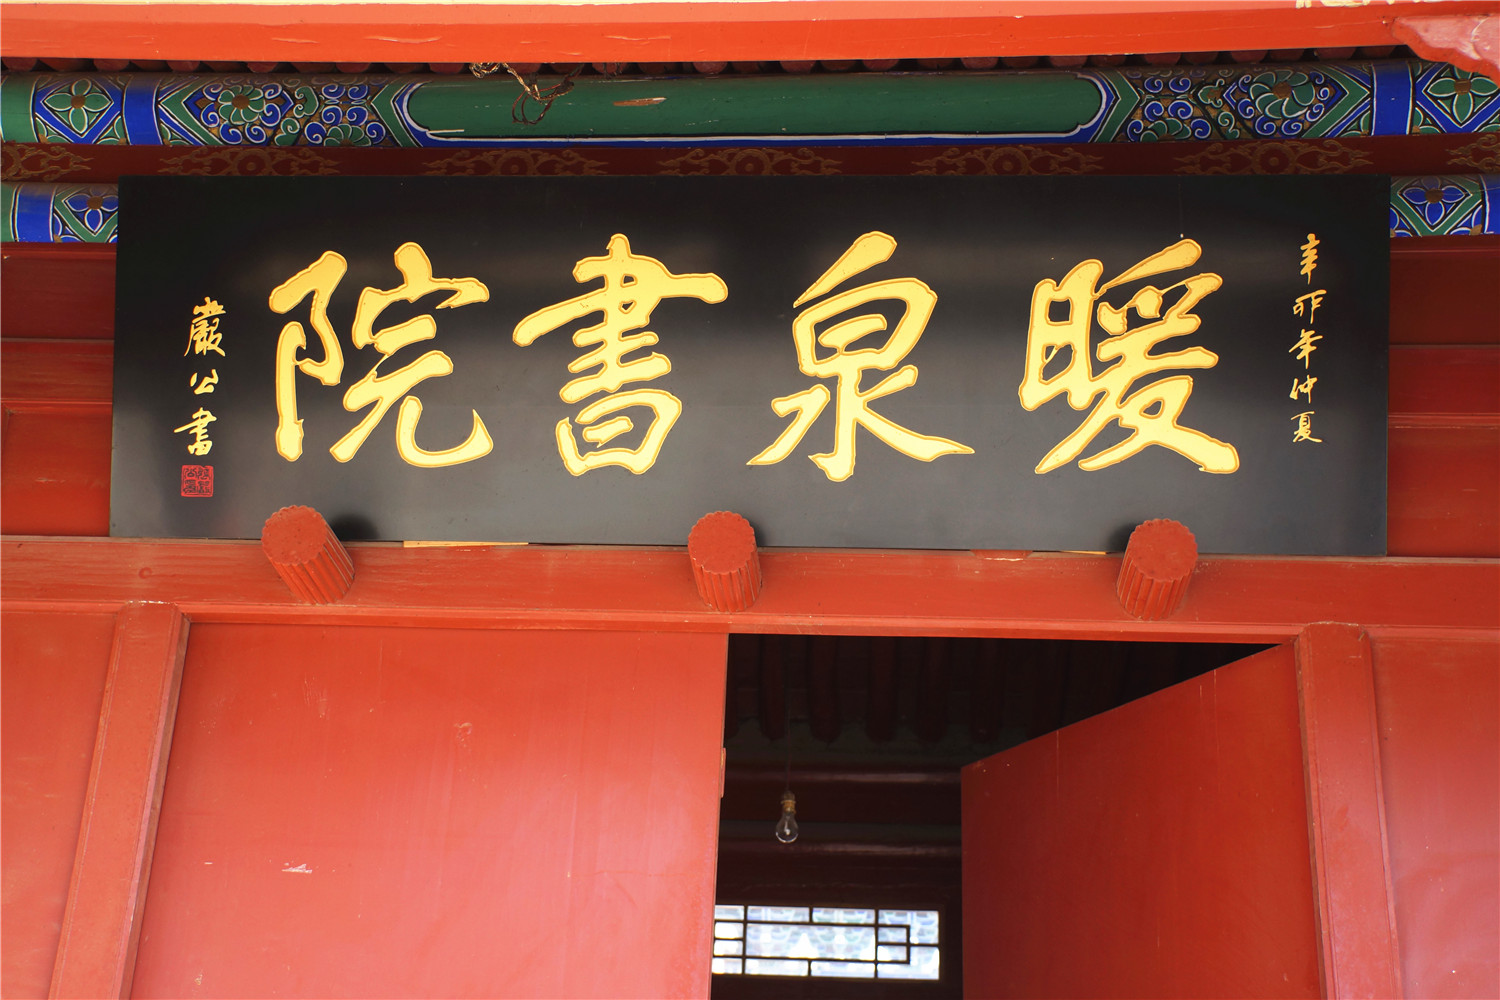 辛卯年仲夏
暖泉書院
嚴公書